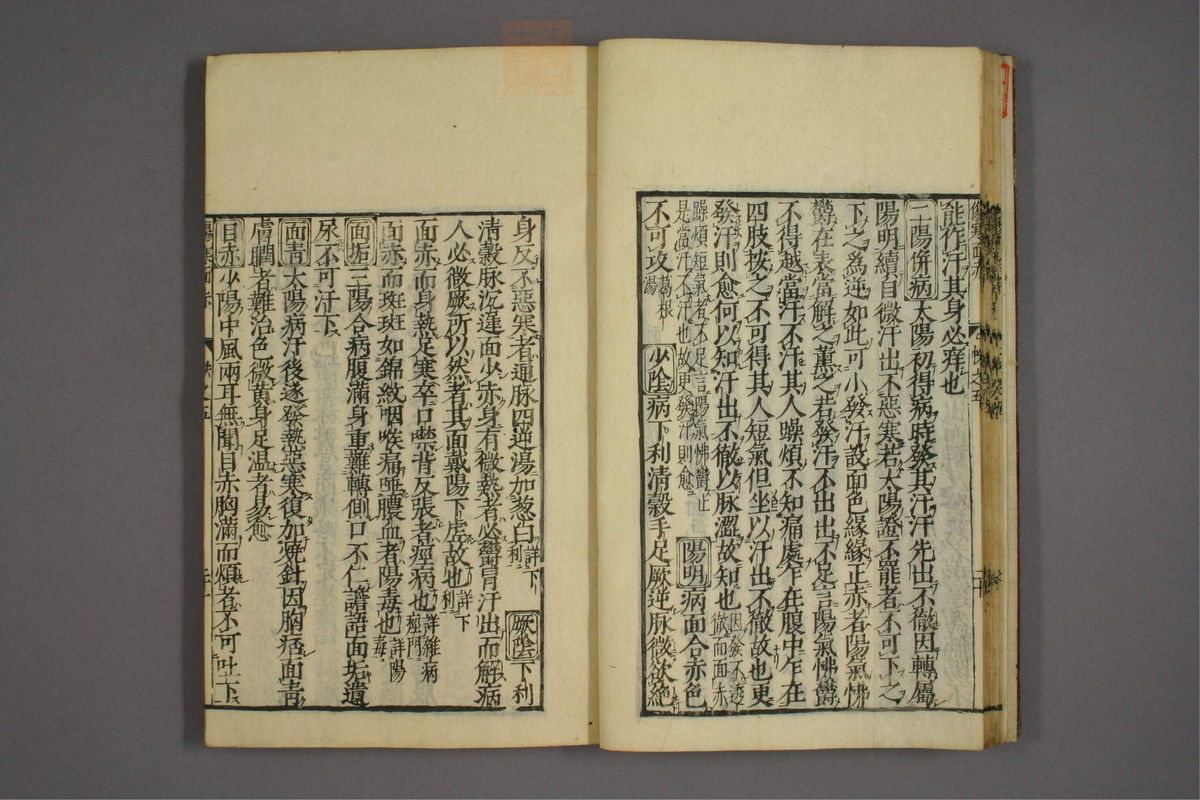 能作汗其身必痒也
二陽併病太陽初得病時發其汗汗先出不徹因轉屬
陽明續自微汗出不惡寒若太陽證不罷者不可下之
下之爲逆如此可小發汗設面色緣緣正赤者陽氣怫
欝在表當解之薫之若發汗不出出不足言陽氣怫欝
不得越當汗不汗其人躁煩不知痛處乍在腹中乍在
四肢按之不可得其人短氣但坐以汗出不徹故也更
發汗則愈何以知汗出不徹以脉澀故知也因發不透徹而面赤
躁煩短氣者不足言陽氣怫欝止是當汗不汗也故更發汗則愈
陽明病面合赤色
不可攻葛根湯
少陰病下利清穀手足厥逆脉微欲絕
身反不惡寒者通脉四逆湯加葱白詳下利
厥陰下利
清穀脉沉遲面少赤身有微熱者必欝冒汗出而解病
人必微厥所以然者其面戴陽下虛故也詳下利
面赤而身熱足寒卒口噤背反張者痙病也詳雜病痙門
面赤而斑斑如錦紋咽喉痛唾膿血者陽毒也詳陽毒
面垢三陽合病腹滿身重難轉側口不仁譫語面垢遺
尿不可汗下
面青太陽病汗後遂發熱惡寒復加燒針因胸痞面青
膚瞤者難治色微黄身足温者易愈
目赤少陽中風兩耳無聞目赤胸滿而煩者不可吐下